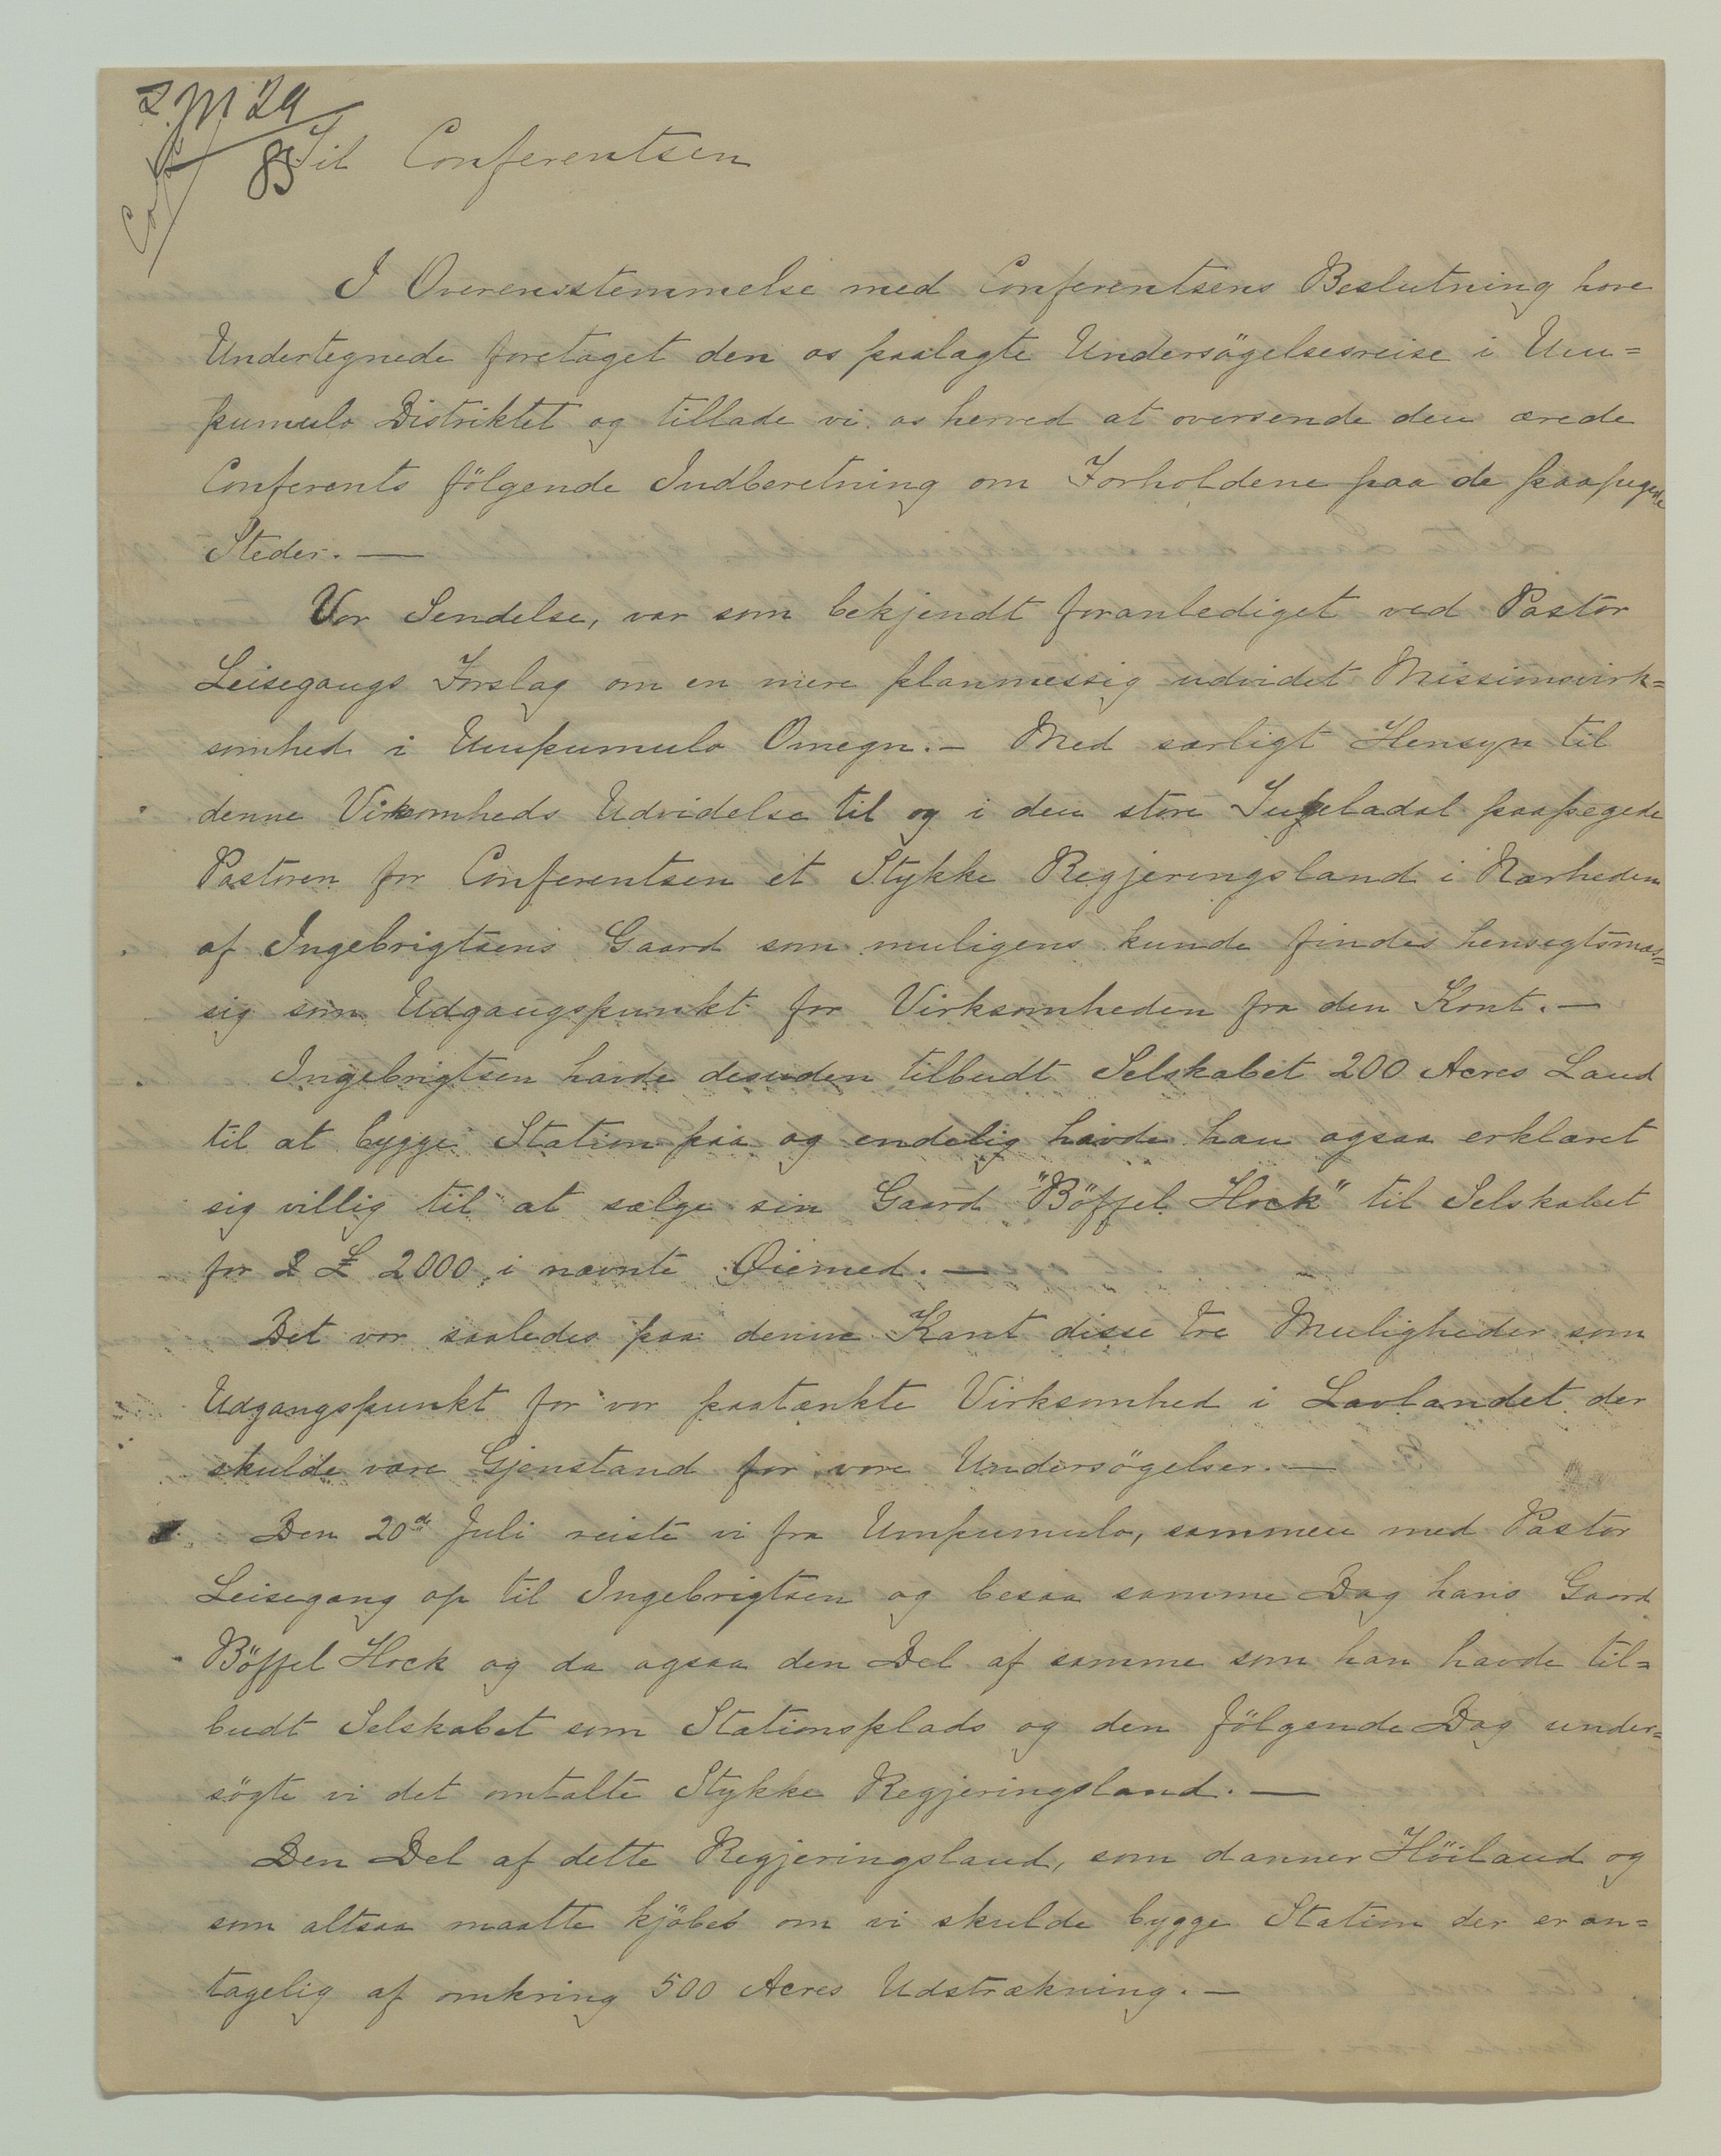 Z. M 29
83
Til Conferentsen
I Overensstemmelse med Conferentsens Beslutning have
Undertegnede foretaget den os paalagte Undersögelsesreise i Um=
pumulo Distriktet og tillade vi os herved at oversende den ærede
Conferents fölgende Indberetning om Forholdene paa de paapegede
Steder. —
Vor Sendelse, var som bekjendt foranlediget ved Pastor
Leisegangs Forslag om en mere planmessig udvidet Missionsvirk=
somhed i Umpumulo Omegn. — Med særligt Hensyn til
denne Virksomheds Udvidelse til og i den store paapegede
Pastoren for Conferentsen et Stykke Regjeringsland i Nærheden
af Ingebrigtsens Gaard som muligens kunde findes hensegtsmæs=
sig som Udgangspunkt for Virksomheden fra den Kant. —
Ingebrigtsen havde desuden tilbudt Selskabet 200 Acres Land
til at bygge Station paa og endelig havde han ogsaa erklæret
sig villig til at sælge sin Gaard "Böffel Hock" til Selskabet
for £ 2000 i nævnte Øiemed. —
Det var saaledes paa denne Kant disse tre Muligheder som
Udgangspunkt for vor paatænkte Virksomhed i Lavlandet der
skulde være Gjenstand for vore Undersögelser. —
Den 20de Juli reiste vi fra Umpumulo, sammen med Pastor
Leisegang op til Ingebrigtsen og besaa samme Dag hans Gaard
Böffel Hock og da ogsaa den Del af samme som han havde til=
budt Selskabet som Stationsplads og den fölgende Dag under=
sögte vi det omtalte Stykke Regjeringsland. —
Den Del af dette Regjeringsland, som danner Höiland og
som altsaa maatte kjöbes om vi skulde bygge Station der er an=
tagelig af omkring 500 Acres Udstrækning. —